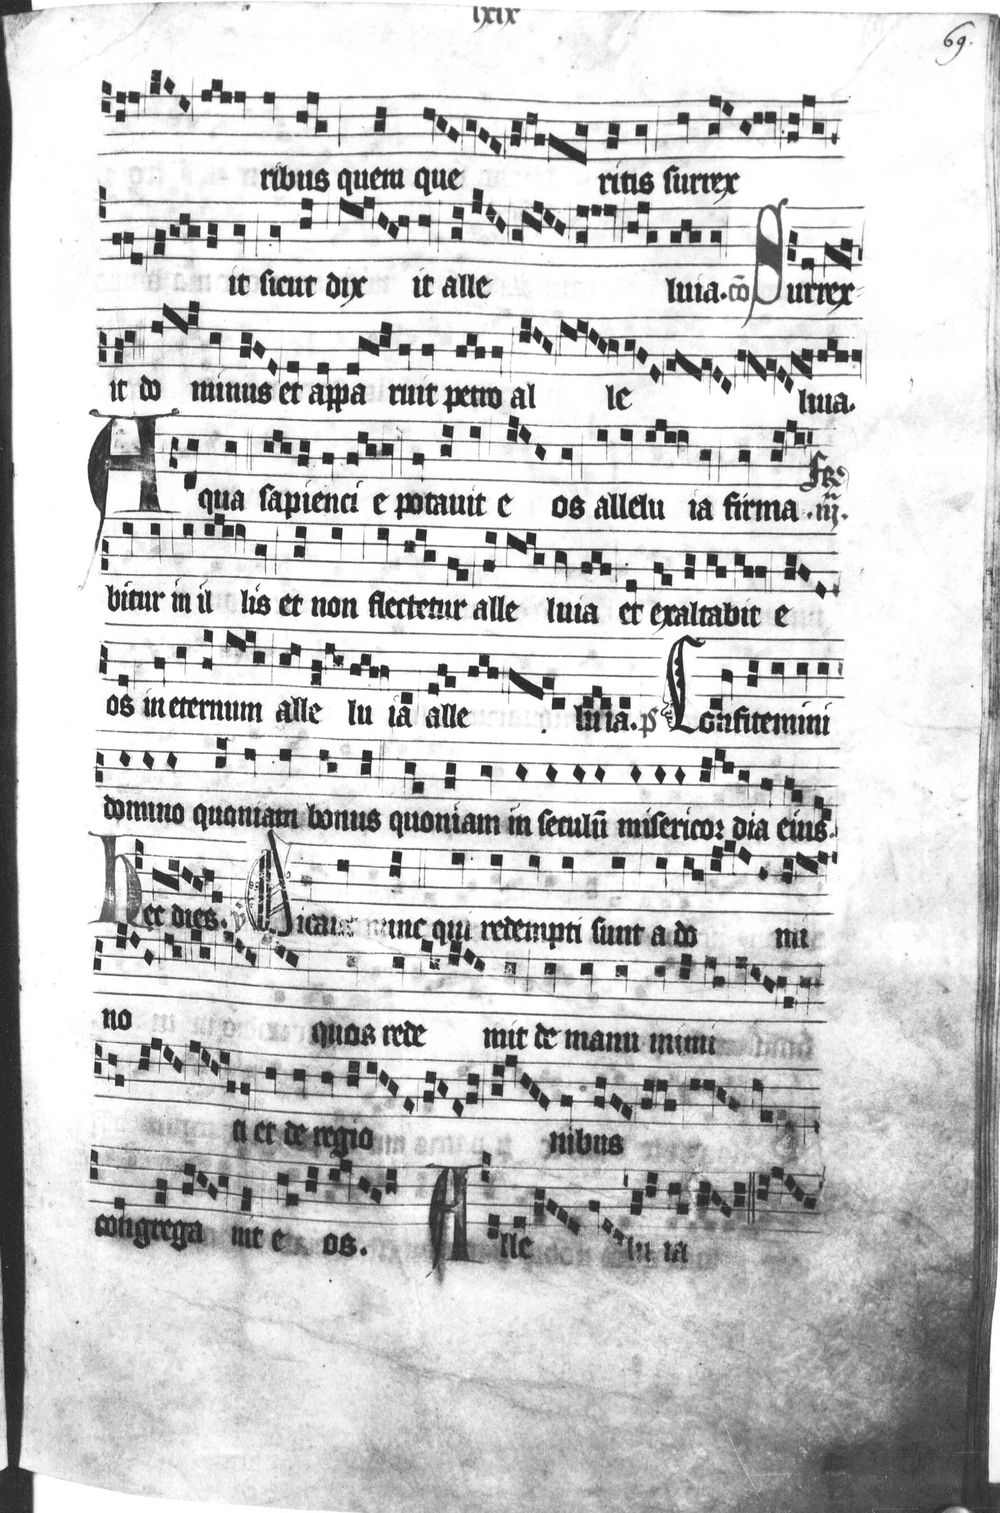 lxix
69.
ribus quem que ritis surrex
it sicut dix it alle luia. cō Surrex
it do minus et appa ruit petro al le luia.
Aqua sapienci e potauit e os allelu ia firma
bitur in il lis et non flectetur alle luia et exaltabit e
os in eternum alle lu ia alle luia. ps Confitemini
domino quoniam bonus quoniam in seculū misericor dia eius.
Hec dies. Dicant nunc qui redempti sunt a do mi
no quos rede mit de manu inimi
ci et de regio nibus
congrega uit e os. Alle lu ia